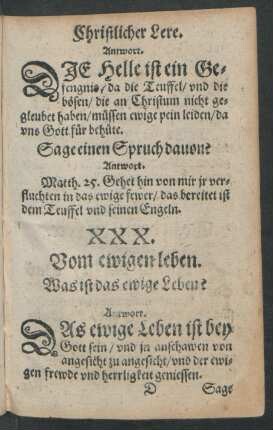 Christlicher Lere.
Antwort.
DIE Helle ist ein Ge-
fengnis/da die Teuffel/vnd die
bösen/die an Christum nicht ge-
gleubet haben/müssen ewige pein leiden/da
vns Gott für behüte.
Sage einen Spruch dauon?
Antwort.
Matth. 25. Gehet hin von mir jr ver-
fluchten in das ewige fewer/das bereitet ist
dem Teuffel vnd seinen Engeln.
XXX.
Vom ewigen leben.
Was ist das ewige Leben?
Antwort.
DAs ewige Leben ist bey
Gott sein/vnd jn anschawen von
angesicht zu angesicht/vnd der ewi-
gen frewde vnd herrligkeit geniessen.
D Sage